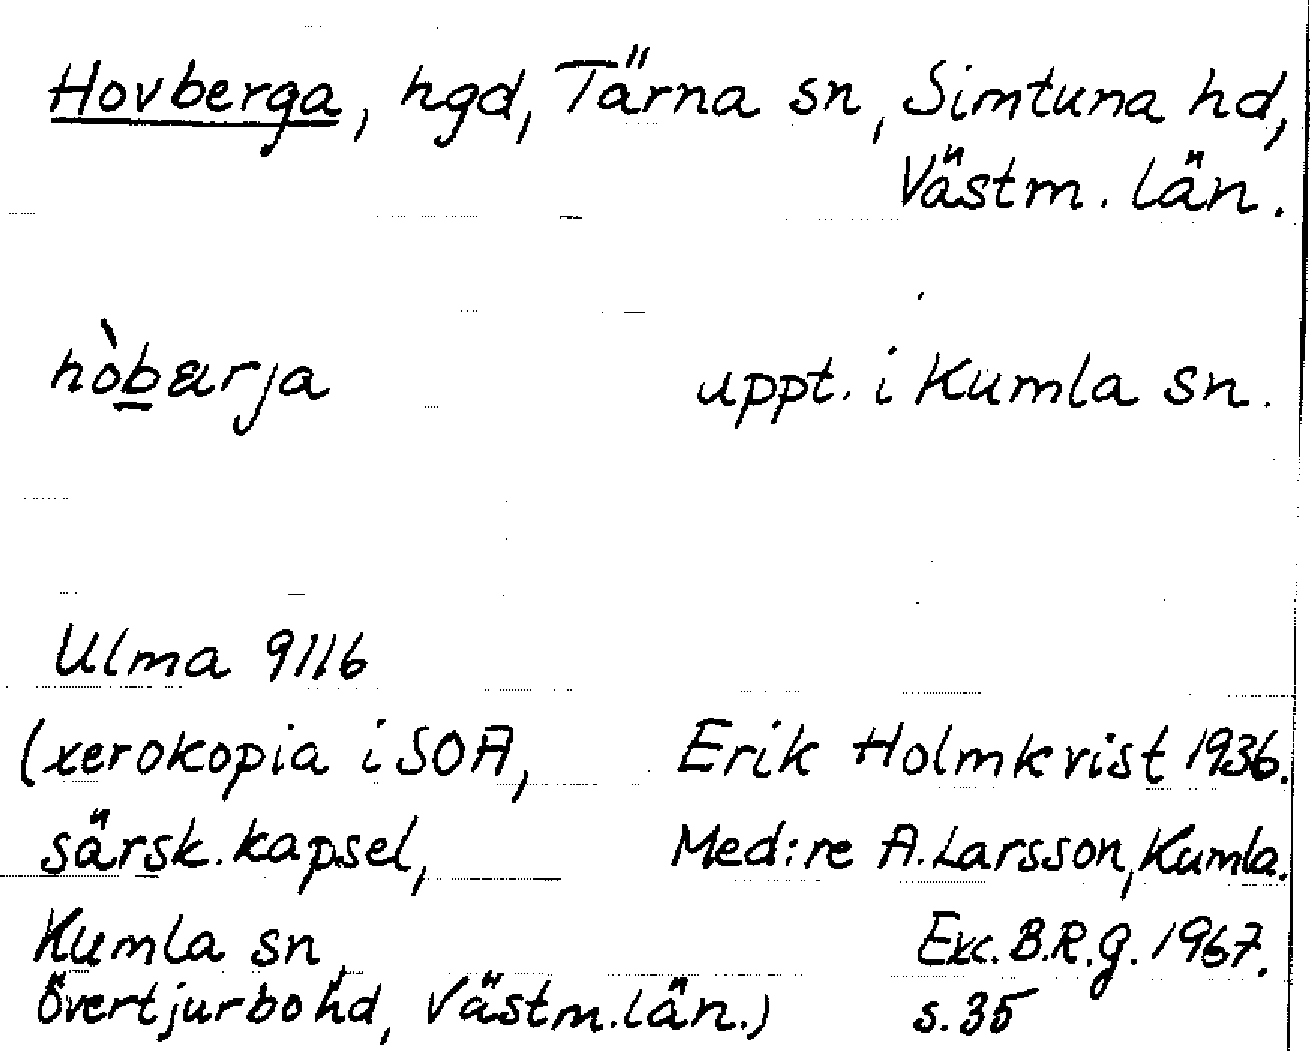 Hovberga, hgd, Tärna sn, Simtuna hd,
Västm. län.
hòbærja uppt. i Kumla sn.
Ulma 9116
(xerokopia i SOA, Erik Holmkvist 1936.
särsk. kapsel, Med:re A. Larsson, Kumla.
Kumla sn, Exc. B.R.g. 1967.
Övertjurbo hd, Västm. län.) s. 35